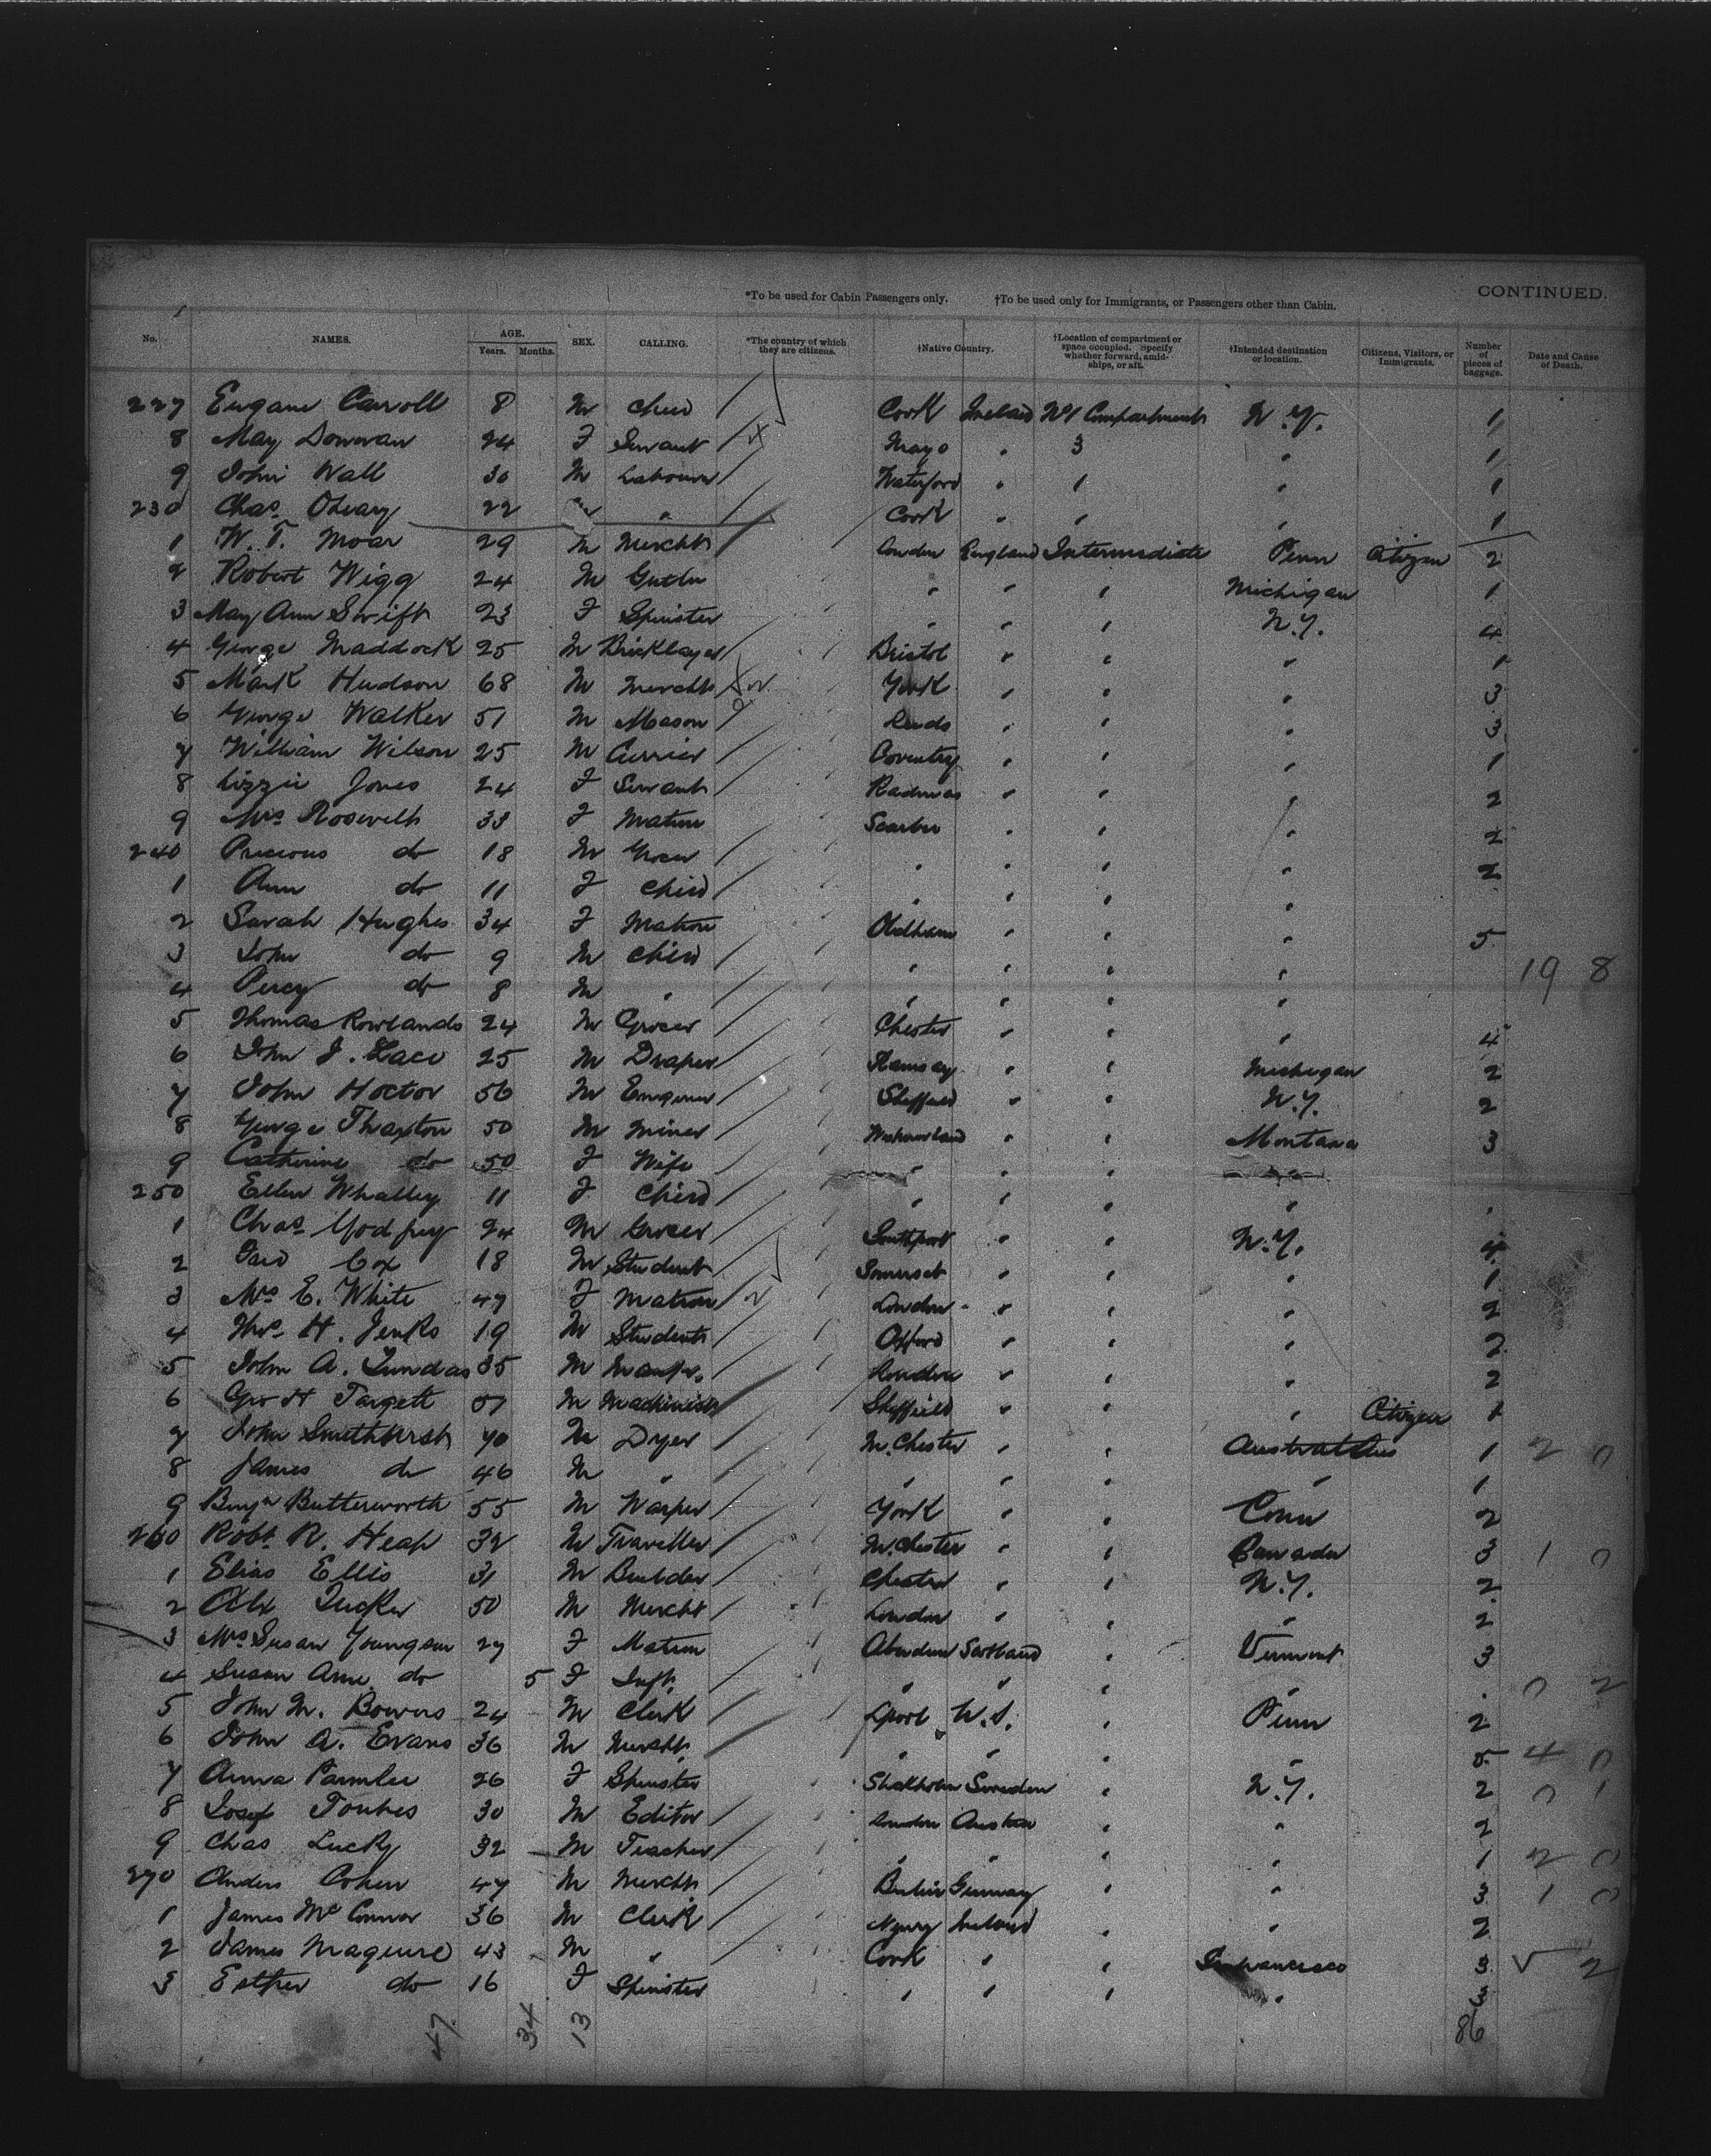 CONTINUED.
*To be used for Cabin Passengers only. †To be used only for Immigrants, or Passengers other than Cabin.
No. NAMES. AGE. Years. Months. SEX. CALLING. *The country of which they are citizens. †Native Country. †Location of compartment or space occupied. Specify whether forward, amidships, or aft. †Intended destination or location. Citizens, Visitors, or Immigrants. Number of pieces of baggage. Date and Cause of Death.
227 Eugane Carroll 8 M Child Cork Ireland No 1 Compartment N.Y. 1
8 May Donovan 24 F Servant Mayo " 3 " 1
9 John Wall 30 M Labourer Waterford " 1 " 1
230 Chas. OLeary 22 " Cork " " " 1
1 W. T. Moar 29 M Mercht London England Intermediate Penn Citizen 2
2 Robert Wigg 24 M " " " Michigan 1
3 May Ann Swift 23 F Spinster " " " N.Y. 4
4 George Maddock 25 M Bricklayer Bristol " " " 1
5 Mark Hudson 68 M Mercht York " " " 3
6 George Walker 51 M Mason Leeds " " " 3
7 William Wilson 25 M Currier Coventry " " " 1
8 Lizzie Jones 24 F Servant " " " 2
9 Mrs Rosevelt 33 F Matron " " " 2
240 Precious do 18 M Grocer " " " " 2
1 Ann do 11 F Child " " " "
2 Sarah Hughes 34 F Matron Oldham " " " 5
3 John do 9 M Child " " " " 19 8
4 Percy do 8 M " " " " "
5 Thomas Rowlands 24 M Grocer Chester " " " 4
6 John J. Lace 25 M Draper Ramsay " " Michigan 2
7 John Hoctor 56 M Engineer Sheffield " " N.Y. 2
8 George Thaxton 50 M Miner Westmorland " " Montana 3
9 Catherine do 50 F Wife " " "
250 Ellen Whalley 11 F Child " " " "
1 Chas. Godfrey 24 M Grocer Southport " " N.Y. 4
2 Cox 18 M Student Somerset " " " 1
3 Mrs E. White 47 F Matron London " " " 2
4 H. Jenks 19 M Student Oxford " " " 2
5 John A. Dundas 35 M Manfr. London " " " 2
6 Geo H Targett 57 M Machinist Sheffield " " " Citizen 1
7 John Smithhirst 40 M Dyer M.Chester " " 1 2 0
8 James do 46 M " " " " " 1
9 Benjn Butterworth 55 M Warper York " " Conn 2
260 Robt R. Heap 32 M Traveller M.Chester " " Canada 3 1 0
1 Elias Ellis 31 M Builder Chester " " N.Y. 2
2 Alex Tucker 50 M Mercht London " " " 2
3 Mrs Susan Youngson 27 F Matron Aberdeen Scotland " Vermont 3
4 Susan Ame do 5 F Inft. " " " " 0 2
5 John M. Bowers 24 M Clerk Lpool U.S. " Penn 2
6 John A. Evans 36 M Mercht " " " " 5 4 0
7 Anna Parmlee 26 F Spinster Stockholm Sweden " N.Y. 2 0 1
8 Josef Foukes 30 M Editor London Austria " " 2
9 Chas Lucky 32 M Teacher " " " 1 2 0
270 Anders Cohen 47 M Mercht Berlin Germany " " 3 1 0
1 James McConnor 36 M Clerk Newry Ireland " " 2
2 James Maguire 43 M " Cork " " Sanfrancisco 3 5 2
3 Esther do 16 F Spinster " " " " 3
47 34 13 86